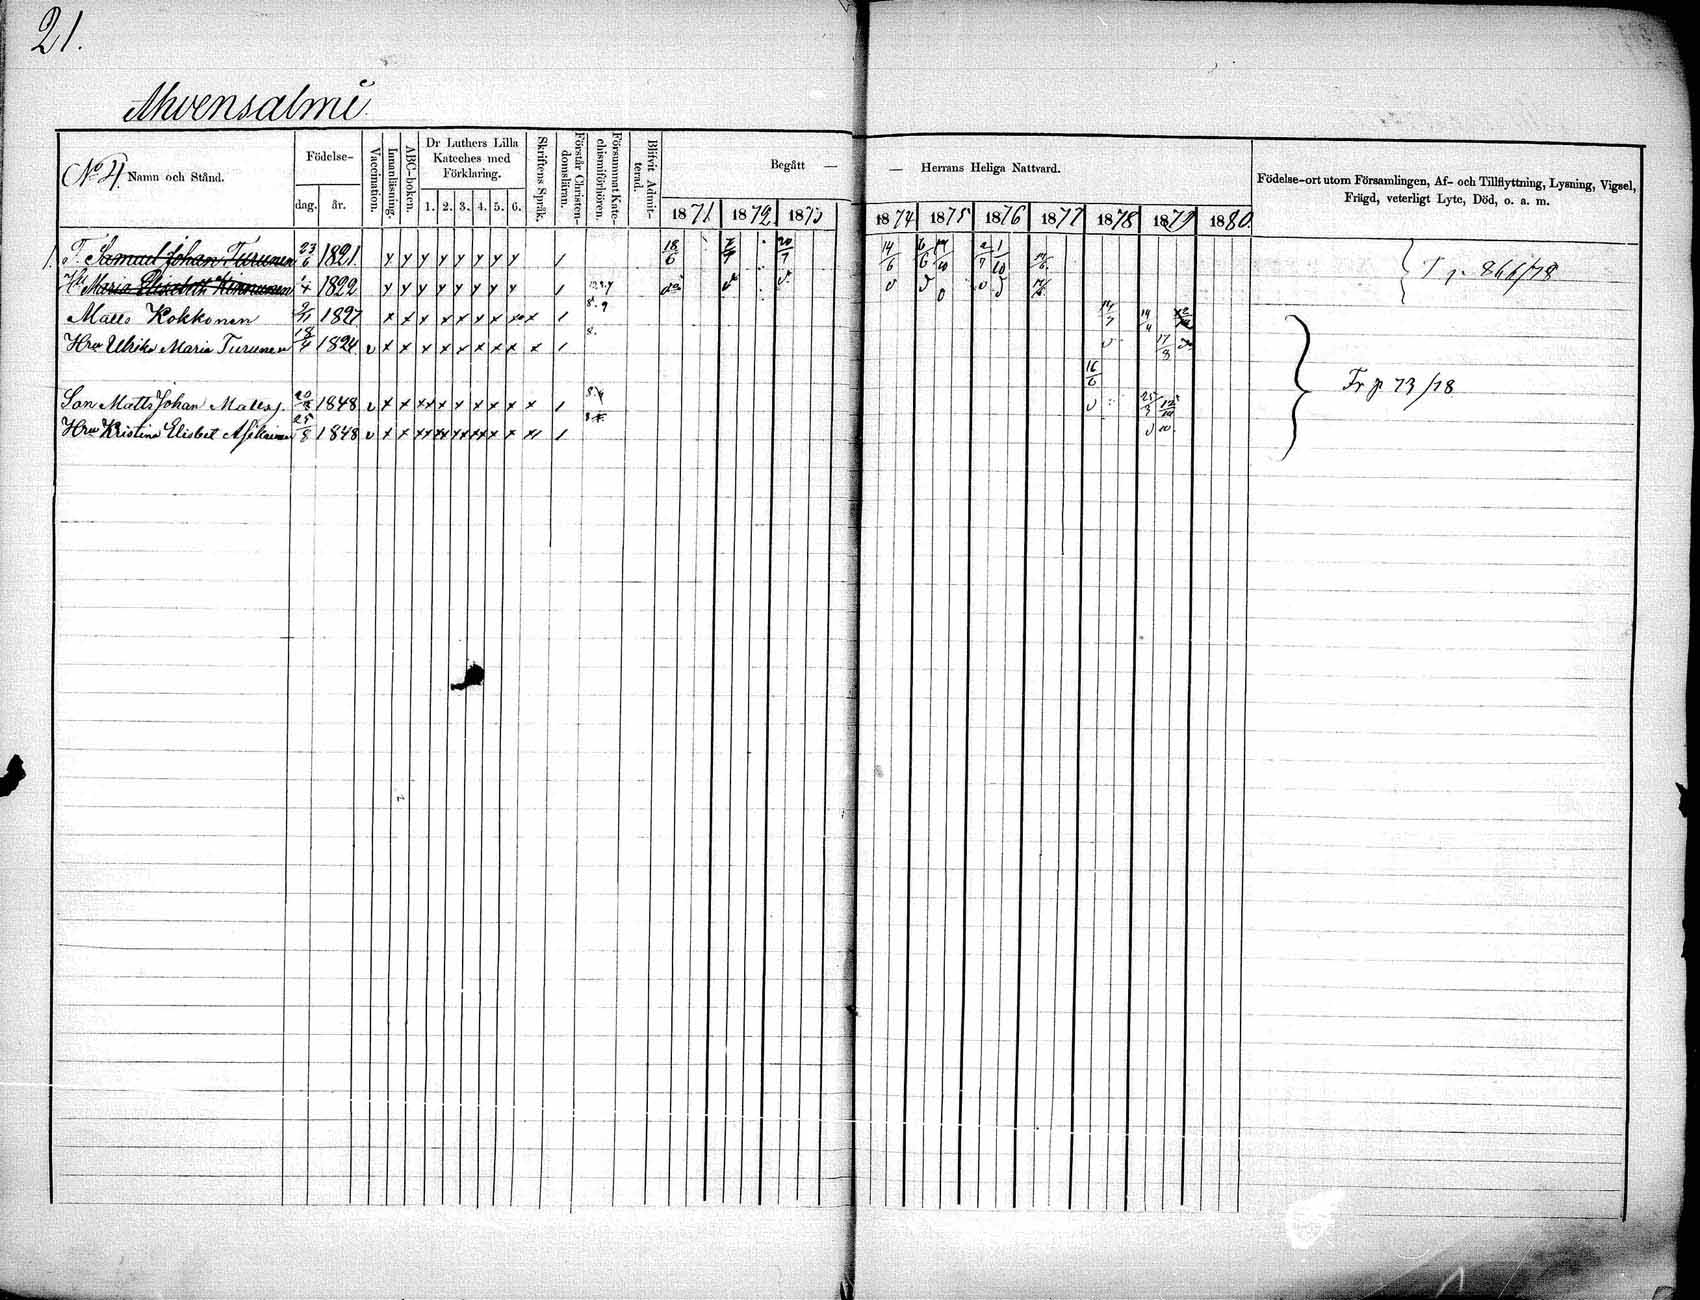 21.
Ahvensalmi
No 4. Namn och Stånd.
Födelse-
dag. år.
Vaccination.
Innanläsning.
ABC-boken.
Dr Luthers Lilla
Kateches med
Förklaring.
1. 2. 3. 4. 5. 6.
Skriftens Språk.
Förstår Christen-
domsläran.
Försummat Kate-
chismiförhören.
Blifvit Admit-
terad.
Begått —
— Herrans Heliga Nattvard.
1871 1872 1873 1874 1875 1876 1877 1878 1879 1880.
Födelse-ort utom Församlingen, Af- och Tillflyttning, Lysning, Vigsel,
Frägd, veterligt Lyte, Död, o. a. m.
1. T. Samuel Johan Turunen 23/6 1821. y y y y y y y y / 18/6 20/7 14/6
Maria Elisabet Kinnunen 1822 y y y y y y y y /
T p. 866/78
Matts Kokkonen 1827 x x x x x x x x x / 8.9 14/7
Hru Ulrika Maria Turunen 18/4 1824 v x x x x x x x x x / 8. 17/3
16/6
Fr p 73/78
Son Matts Johan Mattsj. 1848 v x x x x x x x x x /
Hru Kristina Elisbet 25/8 1848 v x x x x x x x x /